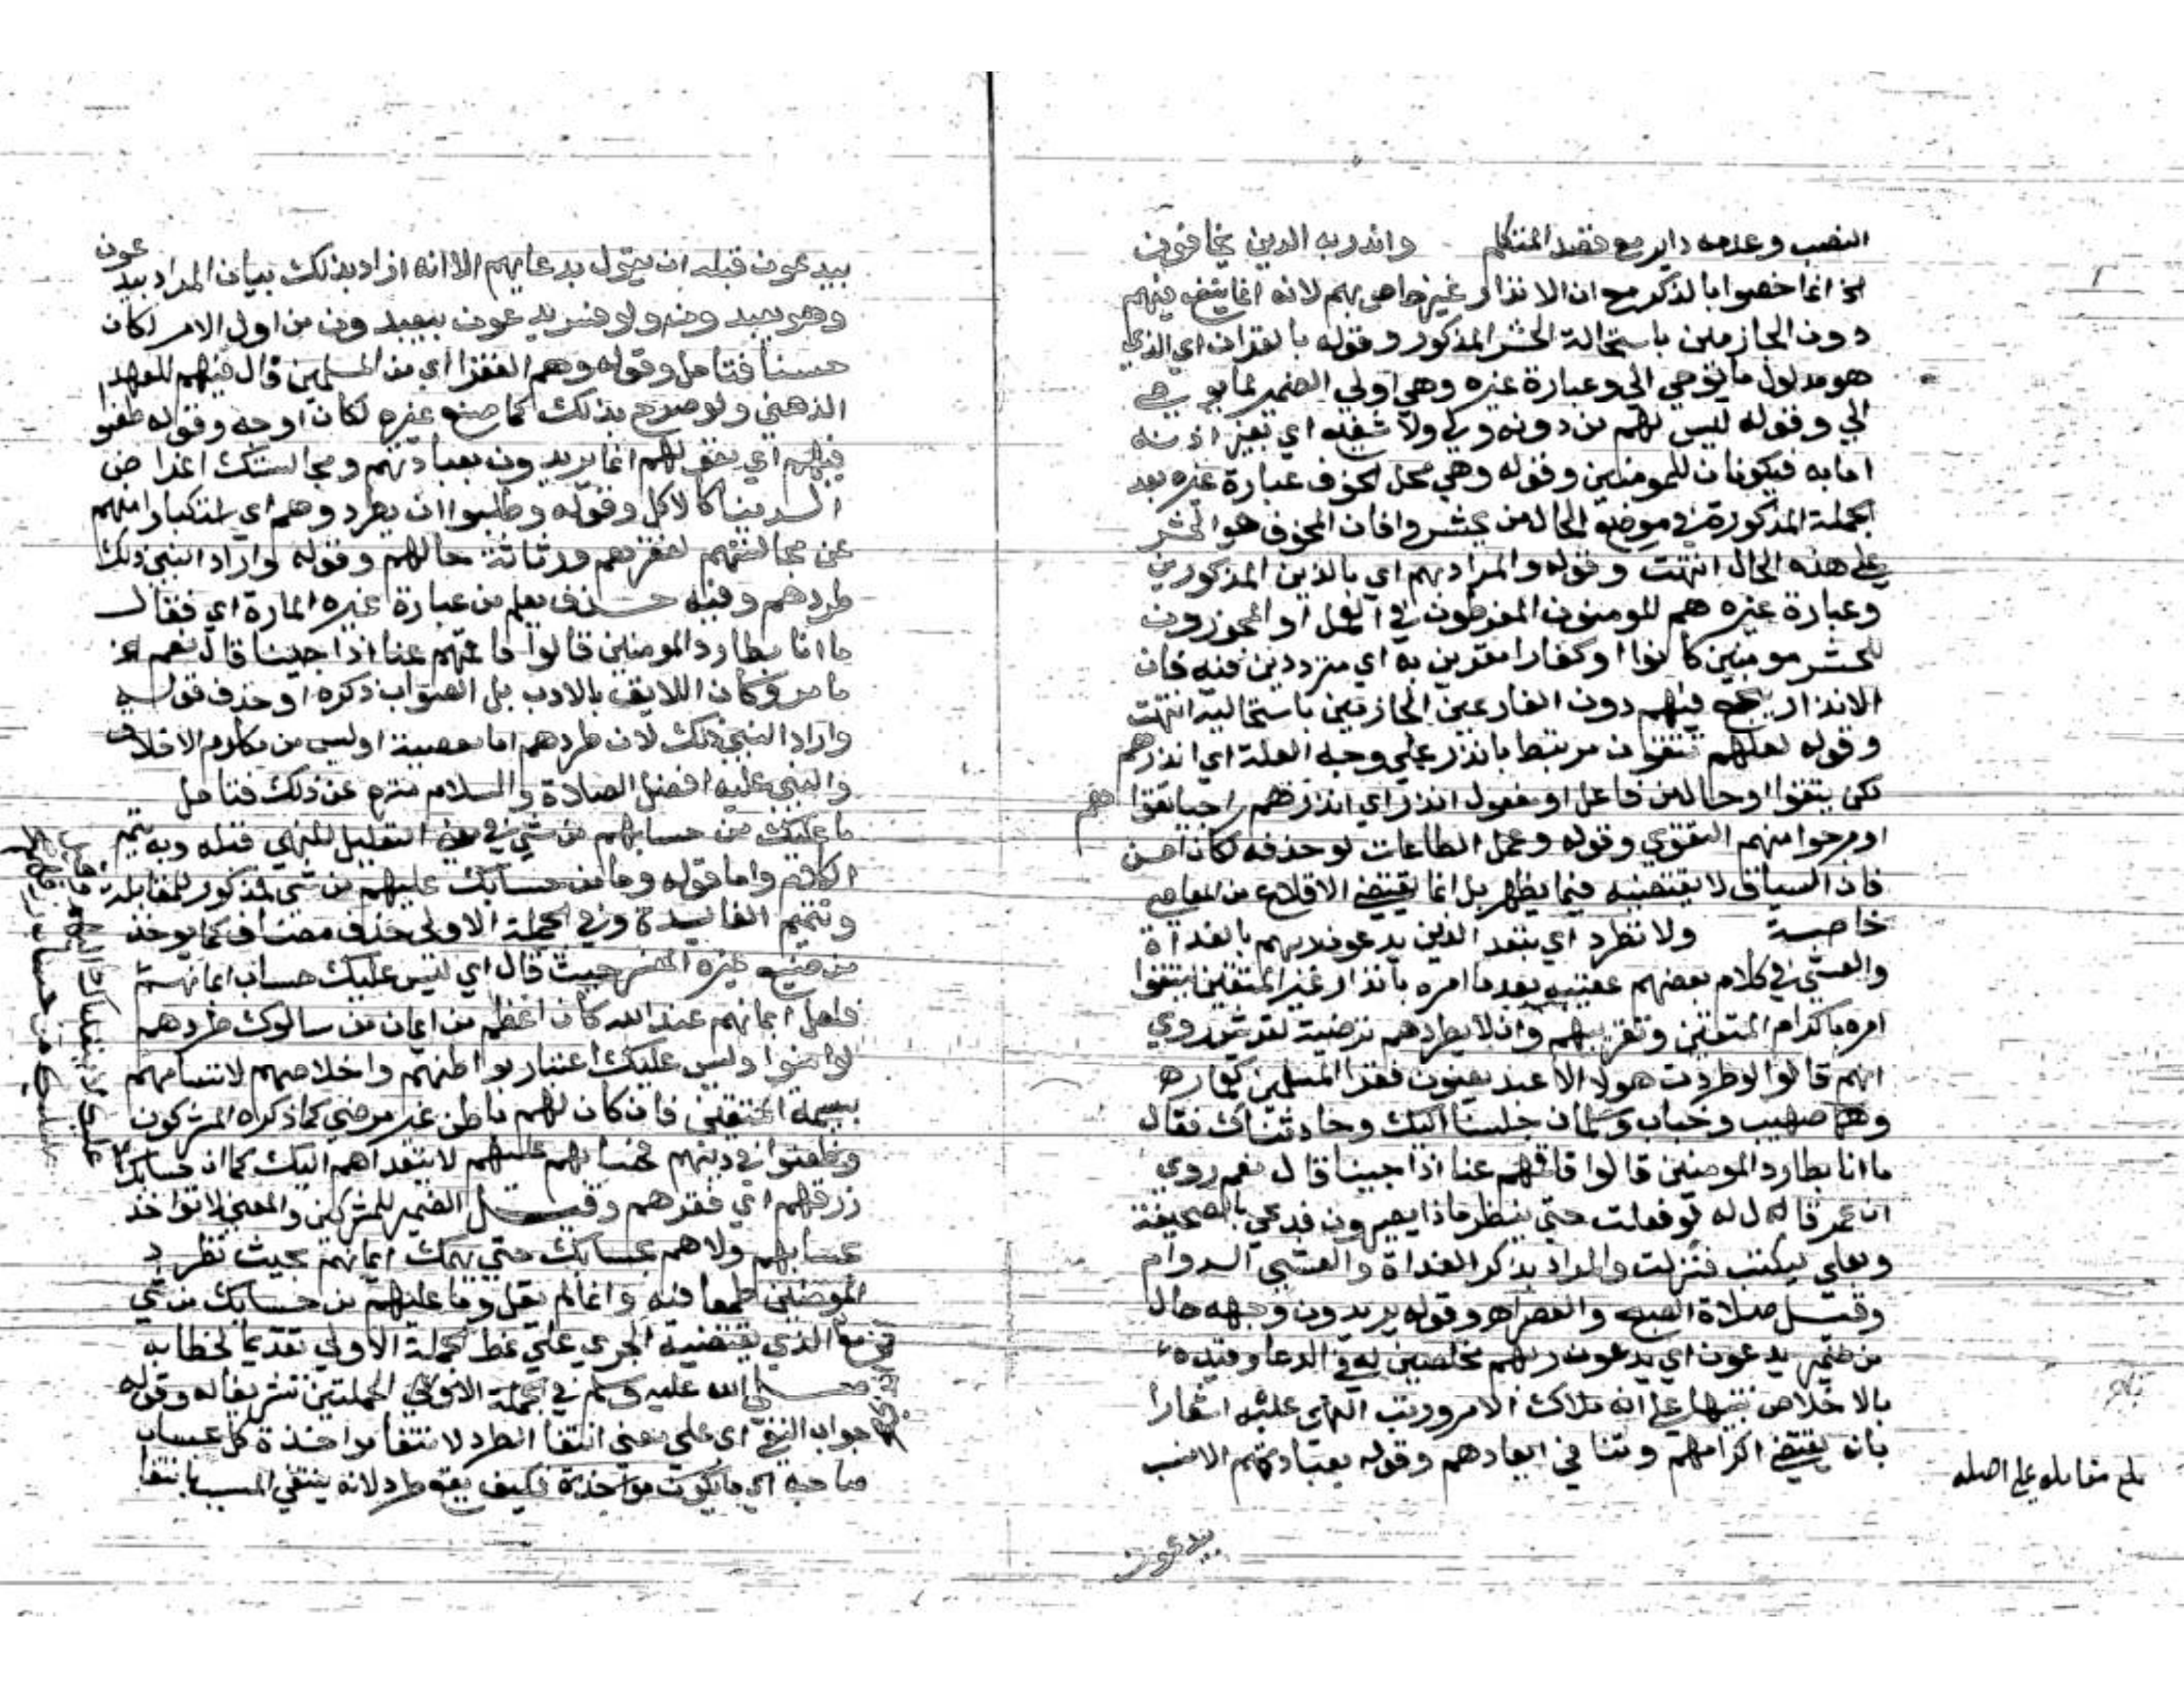 النصب وعدمه داير مع قصد المتكلم وانذر به الذين يخافون
الخ انما خصوا بالذكر مع ان الانذار غير خاص بهم لانه انما ينفع فيهم
دون الجازمين باستحالة الحشر المذكور وقوله بالقران اي الذي
هو مدلول ما يوحي الي وعبارة غيره وهي اولي الضمير لما يوحي
الي وقوله ليس لهم من دونه ولي ولا شفيع اي بغير اذنه
اما به فيكونان للمومنين وقوله وهي محل الخوف عبارة غيره بعد
الجملة المذكورة في موضع الحال من يحشروا فان المخوف هو الحشر
علي هذه الحال انتهت وقوله والمراد بهم اي بالذين المذكورين
وعبارة غيره هم المومنون المفرطون في العمل او المجوزون
للحشر مومنين كانوا او كفارا مقرين به اي مترددين فيه فان
الانذار ينجع فيهم دون الفارغين الجازمين باستحالته انتهت
وقوله لعلهم يتقون مرتبط بانذر علي وجه العلة اي انذرهم
لكي يتقوا او حال من فاعل او مفعول انذر اي انذرهم راجيا تقواهم
او مرجوا منهم التقوي وقوله وعمل الطاعات لو حذفه لكان احسن
فان السياق لا يقتضيه فيما يظهر بل انما يقتضي الاقلاع عن المعاصي
خاصة ولا تطرد اي تبعد الذين يدعون ربهم بالغداة
والعشي في كلام بعضهم عقبه بعد ما امره بانذار غير المتقين ليتقوا
امره باكرام المتقين وتقريبهم وان لا يطردهم ترضية لقريش روي
انهم قالوا لو طردت هولا الاعبد يعنون فقرا المسلمين كعمار
وهم صهيب وخباب وسلمان جلسنا اليك وحادثناك فقال
ما انا بطارد المومنين قالوا فاقمهم عنا اذا جينا قال نعم روي
ان عمر قال له لو فعلت حتي ننظر ماذا يصيرون فدعي بالصحيفة
وبعلي ليكتب فنزلت والمراد بذكر الغداة والعشي الدوام
وقيل صلاة الصبح والعصر اهـ وقوله يريدون وجهه حال
من ضمير يدعون اي يدعون ربهم مخلصين له في الدعا وقيده
بالاخلاص تنبيها علي انه ملاك الامر ورتب النهي عليه اشعارا
بانه يقتضي اكرامهم وينافي ابعادهم وقوله بعبادتهم الانسب
يدعون
بلغ مقابلة علي اصله
بيدعون قبله ان يقول بدعايهم الا انه اراد بذلك بيان المراد بيدعون
وهو يعبدونه ولو فسر يدعون بيعبدون من اول الامر لكان
حسنا فتامل وقوله وهم الفقرا اي من المسلمين قال فيهم للعهد
الذهني ولو صرح بذلك كما صنع غيره لكان اوجه وقوله طعنوا
فيهم اي بقولهم انما يريدون بعبادتهم ومجالستك اغراض
الدنيا كالاكل وقوله وطلبوا ان يطردوهم اي استكبارا منهم
عن مجالستهم لفقرهم ورثاثة حالهم وقوله واراد النبي ذلك
طردهم وفيه حذف يعلم من عبارة غيره المارة اي فقال
ما انا بطارد المومنين قالوا فاقمهم عنا اذا جينا قال نعم الخ
ما مر وكان اللايق بالادب بل الصواب ذكره او حذف قوله
واراد النبي ذلك لان طردهم اما معصية او ليس من مكارم الاخلاق
والنبي عليه افضل الصلاة والسلام منزه عن ذلك فتامل
ما عليك من حسابهم من شي في معني التعليل للنهي قبله وبه يتم
الكلام واما قوله وما من حسابك عليهم من شي فمذكور للمقابلة
وتتميم الفايدة وفي الجملة الاولي حذف مضاف كما يوخذ
من صنيع غيره المفسر حيث قال اي ليس عليك حساب ايمانهم
فلعل ايمانهم عند الله كان اعظم من ايمان من سالوك طردهم
لو امنوا وليس عليك اعتبار بواطنهم واخلاصهم لاتسامهم
بسيمة المتقين فان كان لهم باطن غير مرضي كما ذكره المشركون
وطعنوا في دينهم فحسابهم عليهم لا يتعداهم اليك كما ان حسابك
عليك لا يتعداك اليهم وقيل
ما عليك من حساب رزقهم
رزقهم اي فقرهم وقيل الضمير للمشركين والمعني لا تواخذ
بحسابهم ولا هم بحسابك حتي يهمك ايمانهم بحيث تطرد
المومنين طمعا فيه وانما لم يقل وما عليهم من حسابك من شي
مع الذي يقتضيه الجري علي نمط الجملة الاولي تقديما لخطابه
صلي الله عليه وسلم في الجملة الاولي الجملتين تشريفا له وقوله
جواب النفي اي علي معني انتفا الطرد لانتفا مواخذة كل بحساب
صاحبه اي ما يكون مواخذة فكيف يقع طرد لانه ينتفي المسبب بانتفا